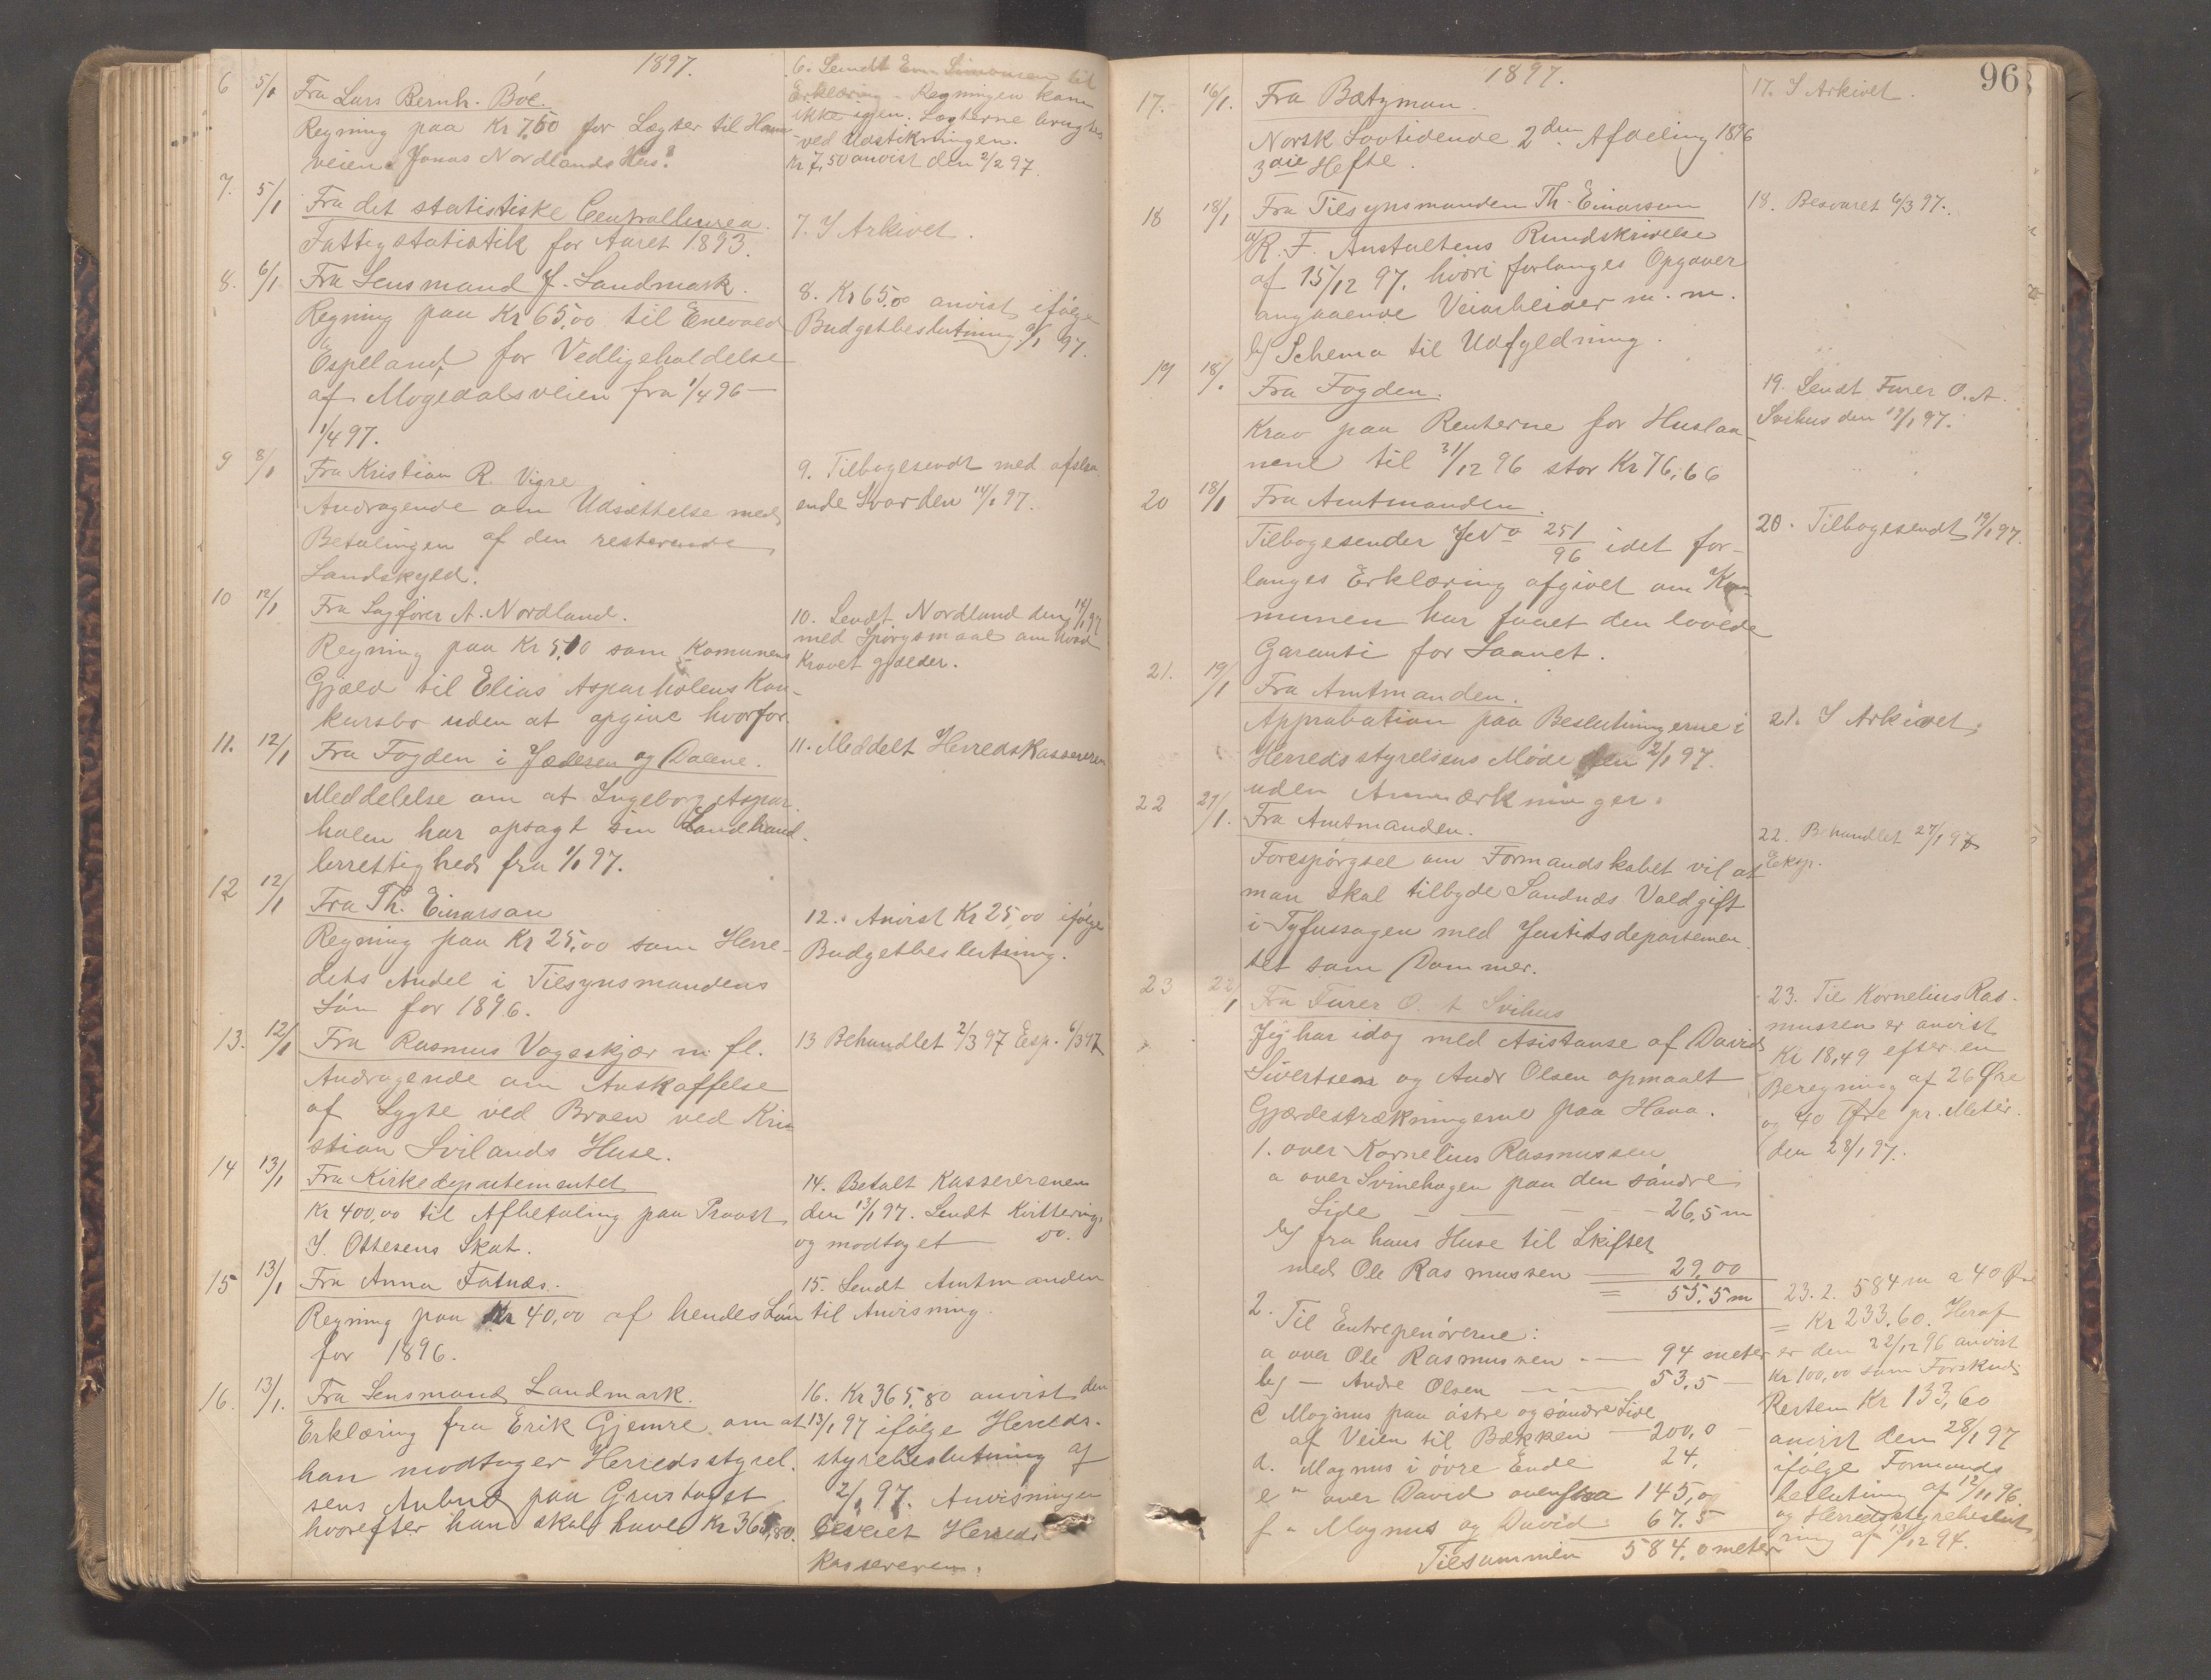 1897.
6 5/1 Fra Lars Bernh. Bóe.
Regning paa Kr 7,50 for Lægter til Hana
veien Jonas Nordlands Hus?
6. Sendt Em. Simonsen til
Erklæring. Regningen kom
ikke igjen. Lægterne brugtes
ved Udstikningen.
Kr 7,50 anvist den 2/2 97.
7. 5/1 Fra det statistiske Centralbureau.
Fattigstatistik for Aaret 1893.
7. I Arkivet.
8. 6/1 Fra Lensmand J. Landmark.
Regning paa Kr 65,00 til Enevald
Ospeland for Vedligeholdelse
af Mogedalsveien fra 1/4 96 —
1/4 97.
8. Kr 65,00 anvist ifølge
Budgetbeslutning 9/1 97.
9 8/1 Fra Kristian R. Vigre
Andragende om Udsættelse med
Betalingen af den resterende
Landskyld.
9. Tilbagesendt med afslaa
ende Svar den 14/1 97.
10 12/1 Fra Sagfører A. Nordland.
Regning paa Kr 5,10 som Komunens
Gjæld til Elias Asparholens Kon-
kursbo uden at opgive hvorfor.
10. Sendt Nordland den 14/1 97
med Spørgsmaal om hvad
Kravet gjælder.
11. 12/1 Fra Fogden i Jæderen og Dalene.
Meddelelse om at Ingeborg Aspar
holen har opsagt sin Landhand-
lerrettighed fra 1/1 97.
11. Meddelt Herredskassereren
12 12/1 Fra Th. Einarsan
Regning paa Kr 25,00 som Herre-
dets Andel i Tilsynsmandens
Løn for 1896.
12. Anvist Kr 25,00 ifølge
Budgetbeslutning.
13. 12/1 Fra Rasmus Vagsskjær m. fl.
Andragende om Anskaffelse
af Lygte ved Broen ved Kri
stian Svilands Huse.
13 Behandlet 2/3 97 Exp. 6/3 97
14 13/1 Fra Kirkedepartementet
Kr 400,00 til Afbetaling paa Provst
I. Ottesens Skat.
14. Betalt Kassereranen
den 13/1 97. Sendt Kvittering
og modtaget — Do.
15 13/1 Fra Anna Fatnæs.
Regning paa Kr 40,00 af hendes Løn
for 1896.
15. Sendt Amtmanden
til Anvisning.
16. 13/1. Fra Lensmand Landmark.
Erklæring fra Erik Gjemre om at
han modtager Herredsstyrel.
sens Anbud paa Grustaget
hvorefter han skal have Kr 365,80.
16. Kr 365,80 anvist den
13/1 97 ifølge Herreds-
styrebeslutning af
2/1 97. Anvisningen
leveret Herreds
kassereren.
96
1897.
17. 16/1. Fra Bætzman.
Norsk Lovtidende 2den Afdeling 1896
3die Hefte.
17. I Arkivet.
18 18/1 Fra Tilsynsmanden Th. Einarsen
a/ R. F. Anstaltens Rundskrivelse
af 15/12 97, hvori forlanges Opgaver
angaaende Veiarbeider m. m.
b/ Schema til Udfyldning.
18. Besvaret 6/3 97.
19 18/1 Fra Fogden.
Krav paa Renterne for Huslaa-
nene til 31/12 96 stor Kr 76,66
19. Sendt Furer O. A.
Svihus den 19/1 97.
20 18/1 Fra Amtmanden.
Tilbagesender JNo 251/96 idet for-
langes Erklæring afgivet om Kom
munen har faaet den lovede
Garanti for Laanet.
20. Tilbagesendt 19/1 97.
21. 19/1 Fra Amtmanden.
Approbation paa Beslutningerne i
Herredsstyrelsens Møde den 2/1 97.
uden Anmærkninger.
21. I Arkivet.
22 21/1. Fra Amtmanden.
Forespørgsel om Formandskabet vil at
man skal tilbyde Sandnæs Voldgift
i Tyfussagen med Justitsdepartemen
tet som Dommer.
22. Behandlet 27/1 97
Eksp.
23 22/1 Fra Furer O. A Svihus
Jeg har idag med Asistanse af David
Sivertsen og Andr Olsen opmaalt
Gjærdestrækningerne paa Hana.
1. over Kornelius Rasmussen
a over Svinehagen paa den søndre
Side — — — — 26,5 m
b/ fra hans Huse til Skiftet
med Ole Rasmussen — 29,00
= 55,5 m
23. Til Kornelius Ras-
mussen er anvist
Kr 18,49 efter en
Beregning af 26 Øre
og 40 Øre pr. Meter.
den 28/1 97.
2. Til Entrepenørerne:
a over Ole Rasmussen — 94 meter
b/ — Andre Olsen — — 53,5 —
c Magnus paa østre og søndre Side
af Veien til Bækken — 200,0 —
d. Magnus i øvre Ende 24,
e " over David ovenfra 145,0
f " Magnus og David 67.5
Tilsammen 584,0 meter
23.2. 584 m a 40 Øre
= Kr 233,60. Heraf
er den 22/12 96 anvist
Kr 100,00 som Forskud
Resten Kr 133,60
anvist den 28/1 97
ifølge Formands
beslutning af 12/11 96.
og Herredsstyrebeslut
ning af 13/12 94.